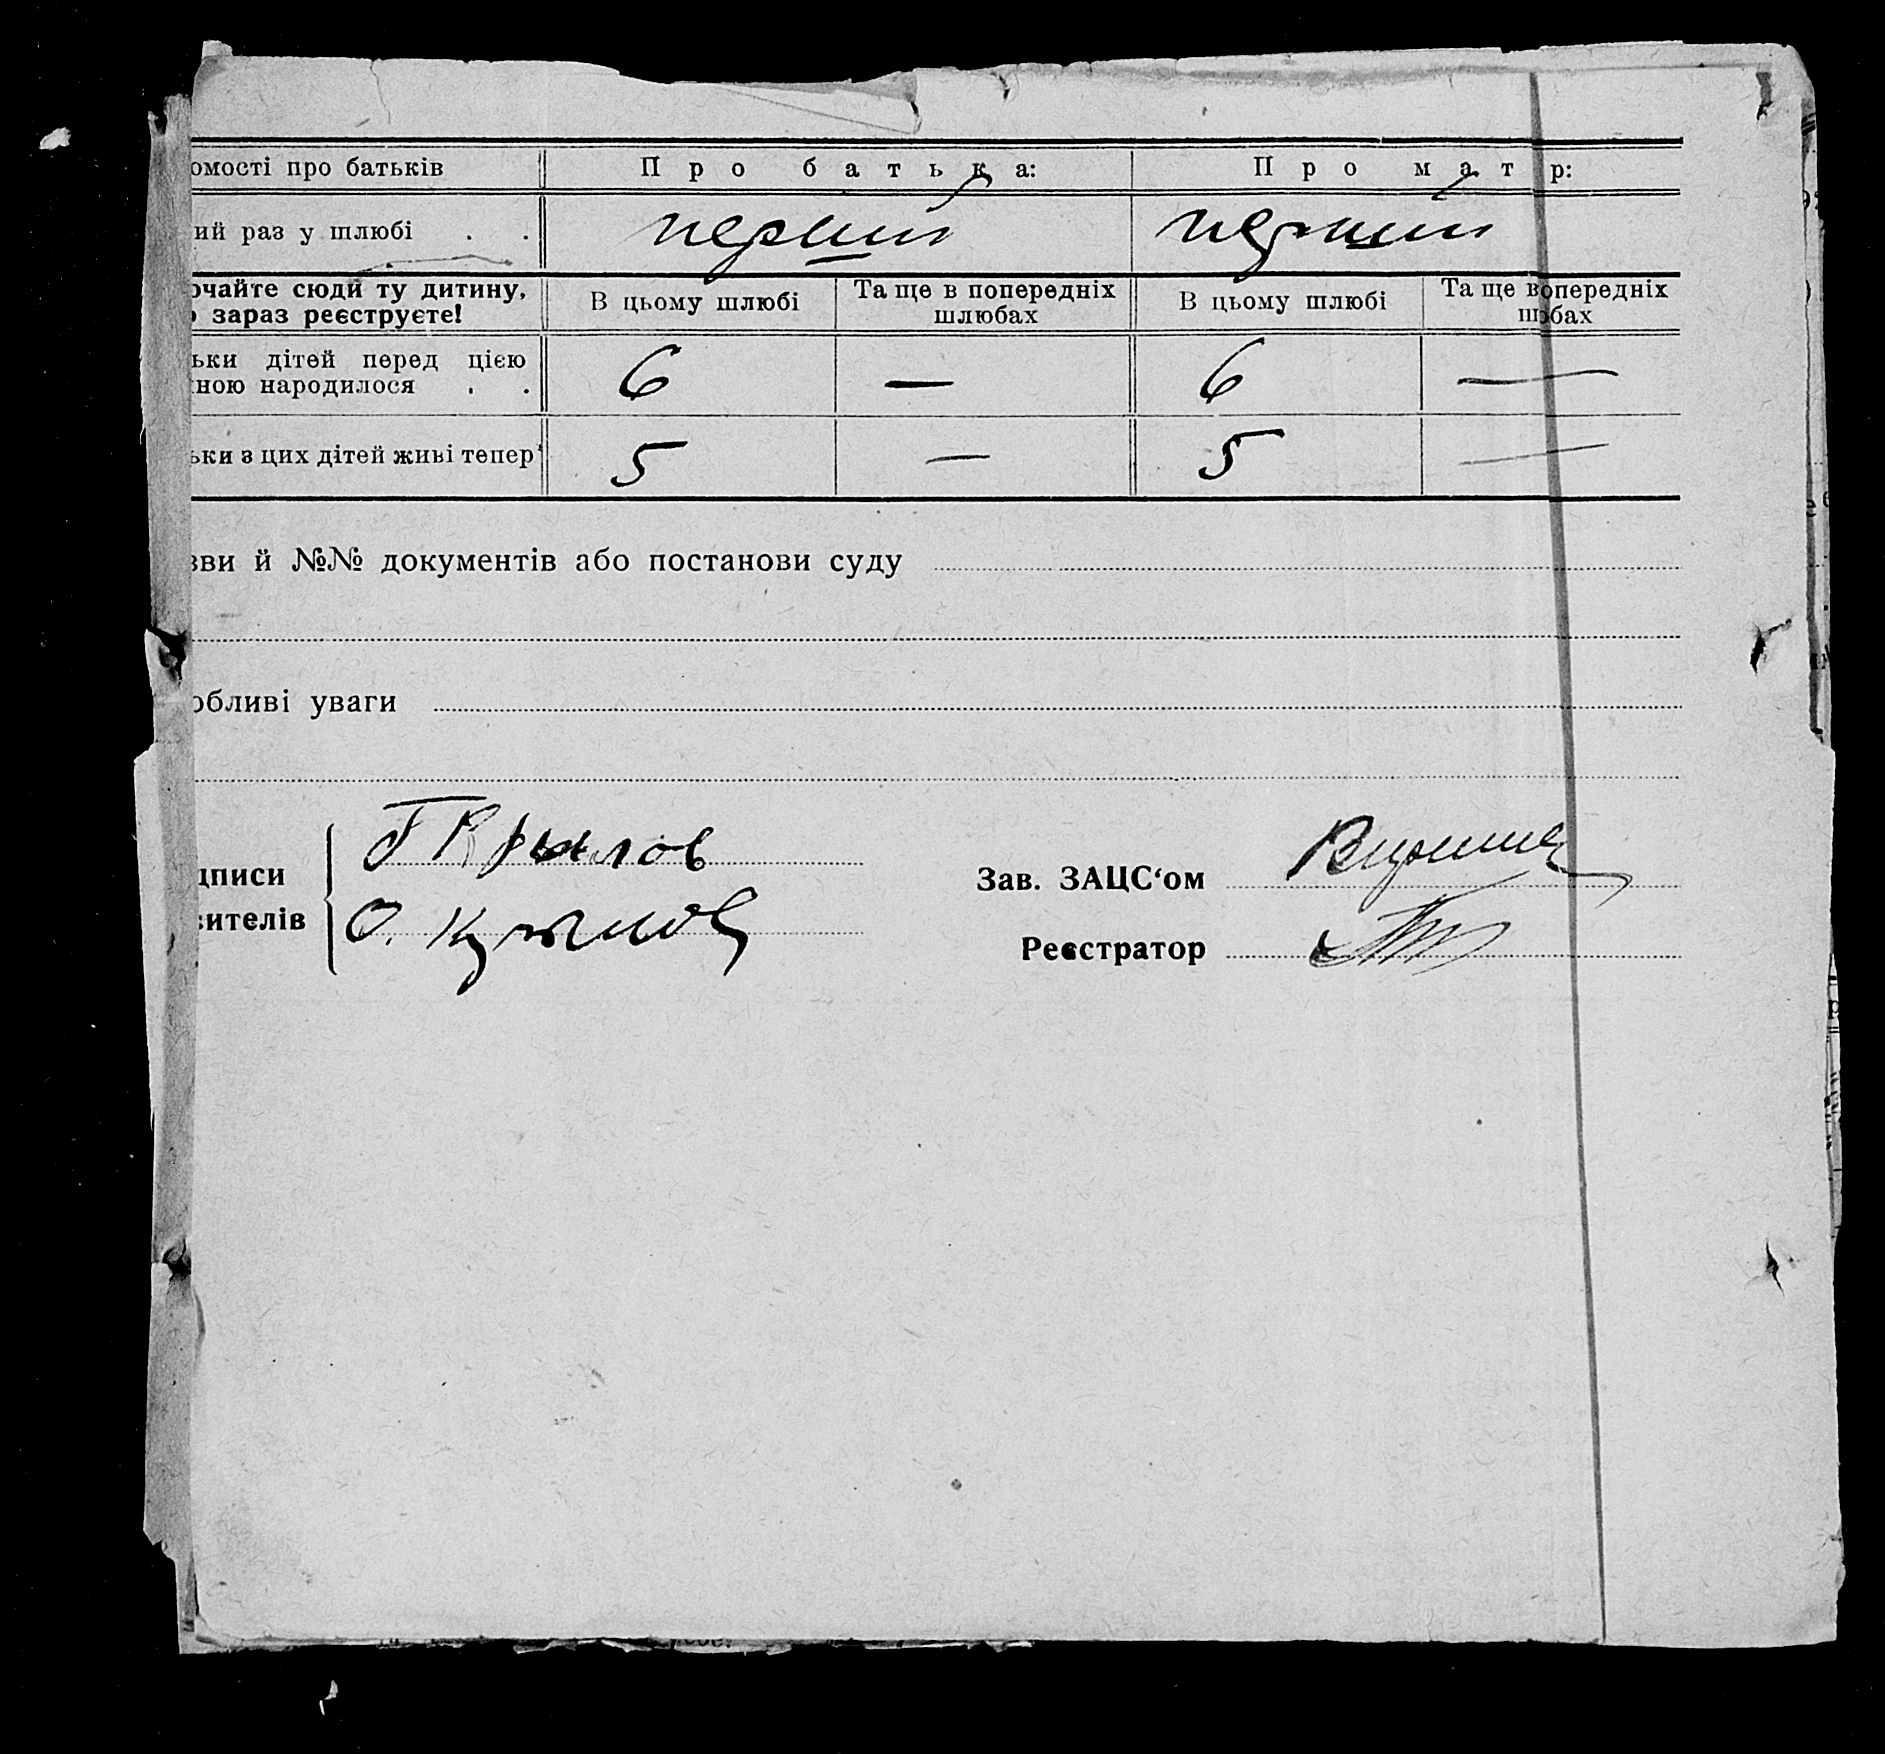 омості про батьків Про батька: Про матр:
ий раз у шлюбі . . перший перший
ючайте сюди ту дитину,
зараз реєструєте!
В цьому шлюбі Та ще в попередніх
шлюбах
В цьому шлюбі Та ще вопередніх
шбах
ьки дітей перед цією
ною народилося . . 6 — 6 —
ьки з цих дітей живі тепер 5 — 5 —
зви й №№ документів або постанови суду
обливі уваги
дписи
ителів
Г Крылов
О. Крылов
Зав. ЗАЦС‘ом
Реєстратор